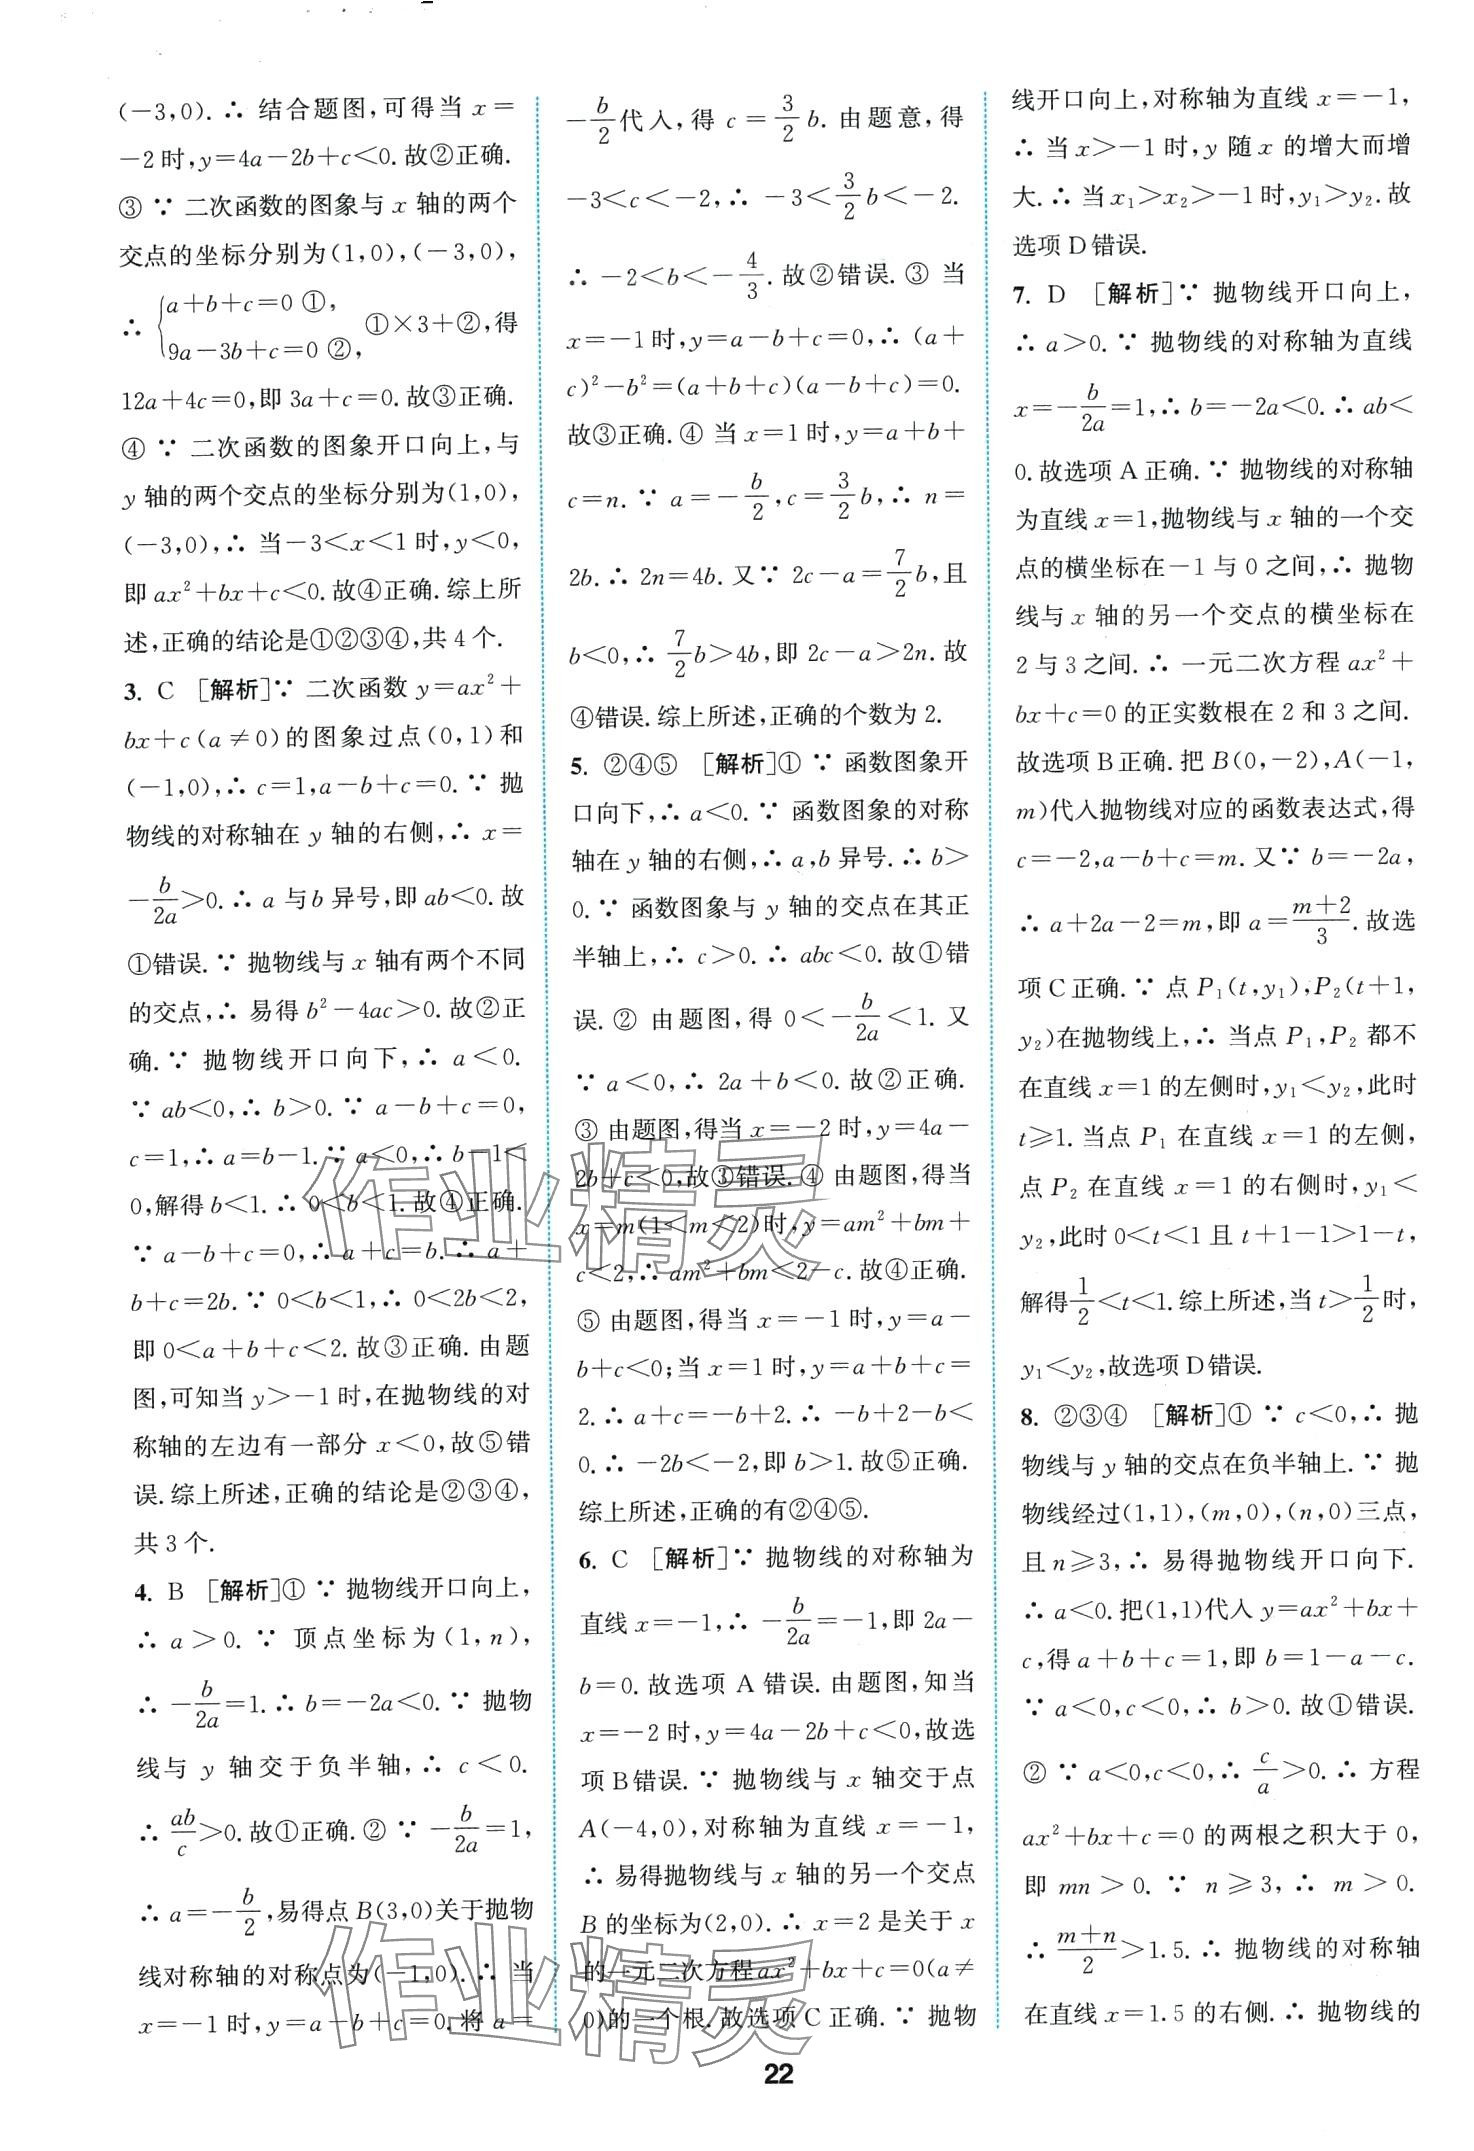 (－3,0).∴ 结合题图,可得当 x＝
－2时,y＝4a－2b＋c＜0.故②正确.
③ ∵ 二次函数的图象与 x 轴的两个
交点的坐标分别为(1,0),(－3,0),
∴ {a＋b＋c＝0 ①, 9a－3b＋c＝0 ②, ①×3＋②,得
12a＋4c＝0,即 3a＋c＝0.故③正确.
④ ∵ 二次函数的图象开口向上,与
y 轴的两个交点的坐标分别为(1,0),
(－3,0),∴ 当－3＜x＜1时,y＜0,
即 ax²＋bx＋c＜0.故④正确.综上所
述,正确的结论是①②③④,共 4 个.
3. C [解析]∵ 二次函数 y＝ax²＋
bx＋c(a≠0)的图象过点(0,1)和
(－1,0),∴ c＝1,a－b＋c＝0.∵ 抛
物线的对称轴在 y 轴的右侧,∴ x＝
－b/2a＞0.∴ a 与 b 异号,即 ab＜0.故
①错误.∵ 抛物线与 x 轴有两个不同
的交点,∴ 易得 b²－4ac＞0.故②正
确.∵ 抛物线开口向下,∴ a＜0.
∵ ab＜0,∴ b＞0.∵ a－b＋c＝0,
c＝1,∴ a＝b－1.∵ a＜0,∴ b－1＜
0,解得 b＜1.∴ 0＜b＜1.故④正确.
∵ a－b＋c＝0,∴ a＋c＝b.∴ a＋
b＋c＝2b.∵ 0＜b＜1,∴ 0＜2b＜2,
即 0＜a＋b＋c＜2.故③正确.由题
图,可知当 y＞－1时,在抛物线的对
称轴的左边有一部分 x＜0,故⑤错
误.综上所述,正确的结论是②③④,
共 3 个.
4. B [解析]① ∵ 抛物线开口向上,
∴ a＞0.∵ 顶点坐标为(1,n),
∴ －b/2a＝1.∴ b＝－2a＜0.∵ 抛物
线与 y 轴交于负半轴,∴ c＜0.
∴ ab/c＞0.故①正确.② ∵ －b/2a＝1,
∴ a＝－b/2,易得点 B(3,0)关于抛物
线对称轴的对称点为(－1,0).∴ 当
x＝－1时,y＝a－b＋c＝0.将 a＝
－b/2代入,得 c＝3/2b.由题意,得
－3＜c＜－2,∴ －3＜3/2b＜－2.
∴ －2＜b＜－4/3.故②错误.③ 当
x＝－1时,y＝a－b＋c＝0,∴ (a＋
c)²－b²＝(a＋b＋c)(a－b＋c)＝0.
故③正确.④ 当 x＝1时,y＝a＋b＋
c＝n.∵ a＝－b/2,c＝3/2b,∴ n＝
2b.∴ 2n＝4b.又∵ 2c－a＝7/2b,且
b＜0,∴ 7/2b＞4b,即 2c－a＞2n.故
④错误.综上所述,正确的个数为 2.
5. ②④⑤ [解析]① ∵ 函数图象开
口向下,∴ a＜0.∵ 函数图象的对称
轴在 y 轴的右侧,∴ a,b 异号.∴ b＞
0.∵ 函数图象与 y 轴的交点在其正
半轴上,∴ c＞0.∴ abc＜0.故①错
误.② 由题图,得 0＜－b/2a＜1.又
∵ a＜0,∴ 2a＋b＜0.故②正确.
③ 由题图,得当 x＝－2时,y＝4a－
2b＋c＜0,故③错误.④ 由题图,得当
x＝m(1＜m＜2)时,y＝am²＋bm＋
c＜2,∴ am²＋bm＜2－c.故④正确.
⑤ 由题图,得当 x＝－1时,y＝a－
b＋c＜0;当 x＝1时,y＝a＋b＋c＝
2.∴ a＋c＝－b＋2.∴ －b＋2－b＜
0.∴ －2b＜－2,即 b＞1.故⑤正确.
综上所述,正确的有②④⑤.
6. C [解析]∵ 抛物线的对称轴为
直线 x＝－1,∴ －b/2a＝－1,即 2a－
b＝0.故选项 A 错误.由题图,知当
x＝－2时,y＝4a－2b＋c＜0,故选
项B错误.∵ 抛物线与 x 轴交于点
A(－4,0),对称轴为直线 x＝－1,
∴ 易得抛物线与 x 轴的另一个交点
B 的坐标为(2,0).∴ x＝2是关于 x
的一元二次方程ax²＋bx＋c＝0(a≠
0)的一个根.故选项C正确.∵ 抛物
线开口向上,对称轴为直线 x＝－1,
∴ 当 x＞－1时,y 随 x 的增大而增
大.∴ 当 x₁＞x₂＞－1时,y₁＞y₂.故
选项D错误.
7. D [解析]∵ 抛物线开口向上,
∴ a＞0.∵ 抛物线的对称轴为直线
x＝－b/2a＝1,∴ b＝－2a＜0.∴ ab＜
0.故选项 A 正确.∵ 抛物线的对称轴
为直线 x＝1,抛物线与 x 轴的一个交
点的横坐标在－1与 0 之间,∴ 抛物
线与 x 轴的另一个交点的横坐标在
2 与 3 之间.∴ 一元二次方程 ax²＋
bx＋c＝0的正实数根在 2 和 3 之间.
故选项B正确.把 B(0,－2),A(－1,
m)代入抛物线对应的函数表达式,得
c＝－2,a－b＋c＝m.又∵ b＝－2a,
∴ a＋2a－2＝m,即 a＝(m＋2)/3.故选
项C正确.∵ 点 P₁(t,y₁),P₂(t＋1,
y₂)在抛物线上,∴ 当点 P₁,P₂ 都不
在直线 x＝1的左侧时,y₁＜y₂,此时
t⩾1.当点 P₁ 在直线 x＝1的左侧,
点 P₂ 在直线 x＝1的右侧时,y₁＜
y₂,此时 0＜t＜1且 t＋1－1＞1－t,
解得1/2＜t＜1.综上所述,当 t＞1/2时,
y₁＜y₂,故选项D错误.
8. ②③④ [解析]① ∵ c＜0,∴ 抛
物线与 y 轴的交点在负半轴上.∵ 抛
物线经过(1,1),(m,0),(n,0)三点,
且 n⩾3,∴ 易得抛物线开口向下.
∴ a＜0.把(1,1)代入 y＝ax²＋bx＋
c,得 a＋b＋c＝1,即 b＝1－a－c.
∵ a＜0,c＜0,∴ b＞0.故①错误.
② ∵ a＜0,c＜0,∴ c/a＞0.∴ 方程
ax²＋bx＋c＝0的两根之积大于 0,
即 mn＞0.∵ n⩾3,∴ m＞0.
∴ (m＋n)/2＞1.5.∴ 抛物线的对称轴
在直线 x＝1.5的右侧.∴ 抛物线的
22
作业精灵
作业精灵